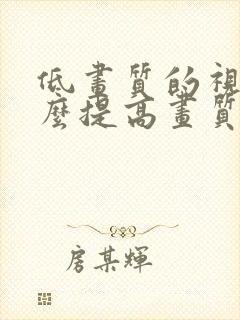 低畫質的視
麼提高畫質
房某輝